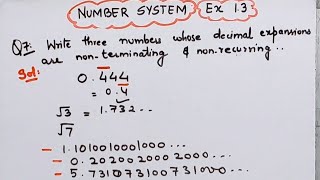 NUMBER SYSTEM Ex 1.3
Q7: Write three numbers whose decimal expansions
are non-terminating & non-recurring..
Sol:
0.444
= 0.4̅
√3 = 1.732..
√7
- 1.1010010001000...
- 0.202002000 2000...
- 5.731073100731000...